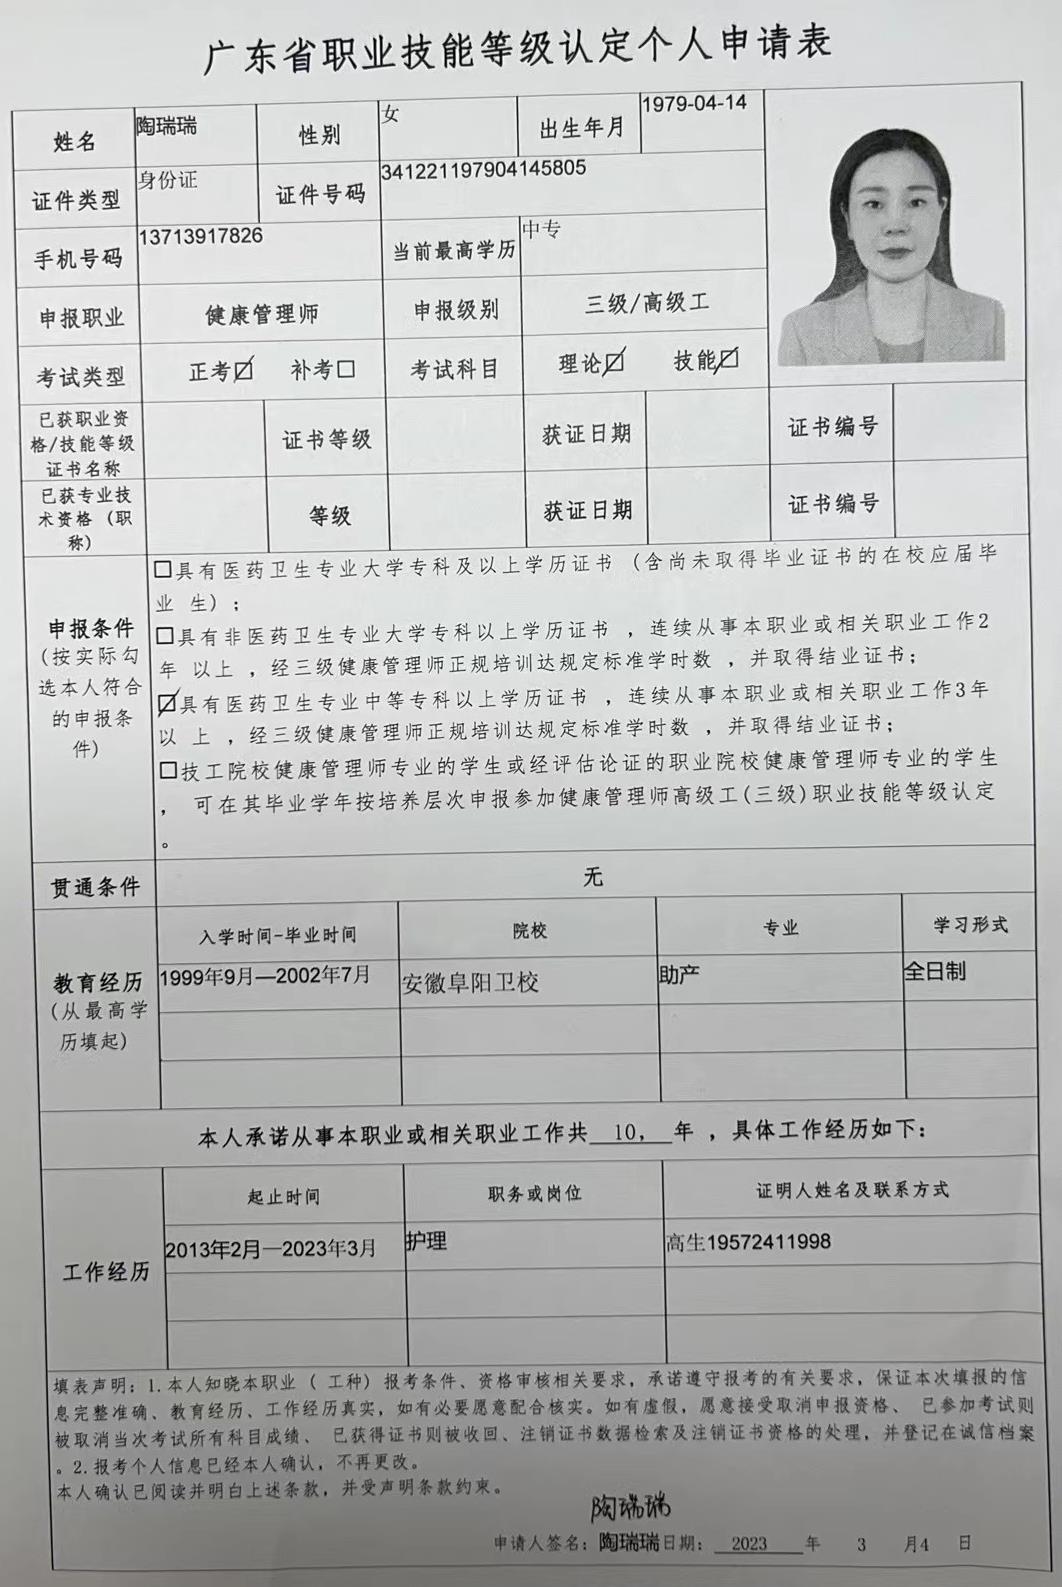 广东省职业技能等级认定个人申请表
姓名 陶瑞瑞 性别 女 出生年月 1979-04-14
证件类型 身份证 证件号码 341221197904145805
手机号码 13713917826 当前最高学历 中专
申报职业 健康管理师 申报级别 三级/高级工
考试类型 正考☑ 补考□ 考试科目 理论☑ 技能☑
已获职业资
格/技能等级
证书名称
证书等级 获证日期 证书编号
已获专业技
术资格（职
称）
等级 获证日期 证书编号
申报条件
(按实际勾
选本人符合
的申报条
件)
□具有医药卫生专业大学专科及以上学历证书 (含尚未取得毕业证书的在校应届毕
业 生) ;
□具有非医药卫生专业大学专科以上学历证书 ，连续从事本职业或相关职业工作2
年 以上 ，经三级健康管理师正规培训达规定标准学时数 ，并取得结业证书;
☑具有医药卫生专业中等专科以上学历证书 ，连续从事本职业或相关职业工作3年
以 上 ，经三级健康管理师正规培训达规定标准学时数 ，并取得结业证书;
□技工院校健康管理师专业的学生或经评估论证的职业院校健康管理师专业的学生
， 可在其毕业学年按培养层次申报参加健康管理师高级工(三级)职业技能等级认定
。
贯通条件 无
教育经历
(从最高学
历填起)
入学时间-毕业时间 院校 专业 学习形式
1999年9月—2002年7月 安徽阜阳卫校 助产 全日制
本人承诺从事本职业或相关职业工作共 10， 年 ，具体工作经历如下:
工作经历
起止时间 职务或岗位 证明人姓名及联系方式
2013年2月—2023年3月 护理 高生19572411998
填表声明: 1.本人知晓本职业 ( 工种) 报考条件、资格审核相关要求，承诺遵守报考的有关要求，保证本次填报的信
息完整准确、教育经历、工作经历真实，如有必要愿意配合核实。如有虚假，愿意接受取消申报资格、 已参加考试则
被取消当次考试所有科目成绩、 已获得证书则被收回、注销证书数据检索及注销证书资格的处理，并登记在诚信档案
。2.报考个人信息已经本人确认，不再更改。
本人确认已阅读并明白上述条款，并受声明条款约束。
陶瑞瑞
申请人签名: 陶瑞瑞日期: 2023 年 3 月4 日